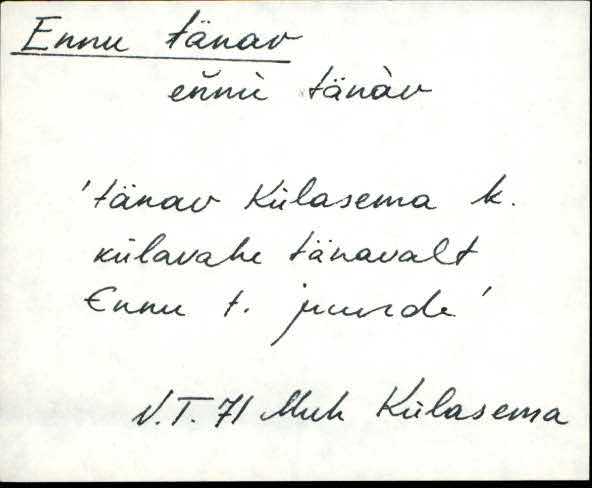 Ennu tänav
eňnù tänàv
'tänav Külasema k.
külavahe tänavalt
Ennu t. juurde'
V.T. 71 Muh Külasema